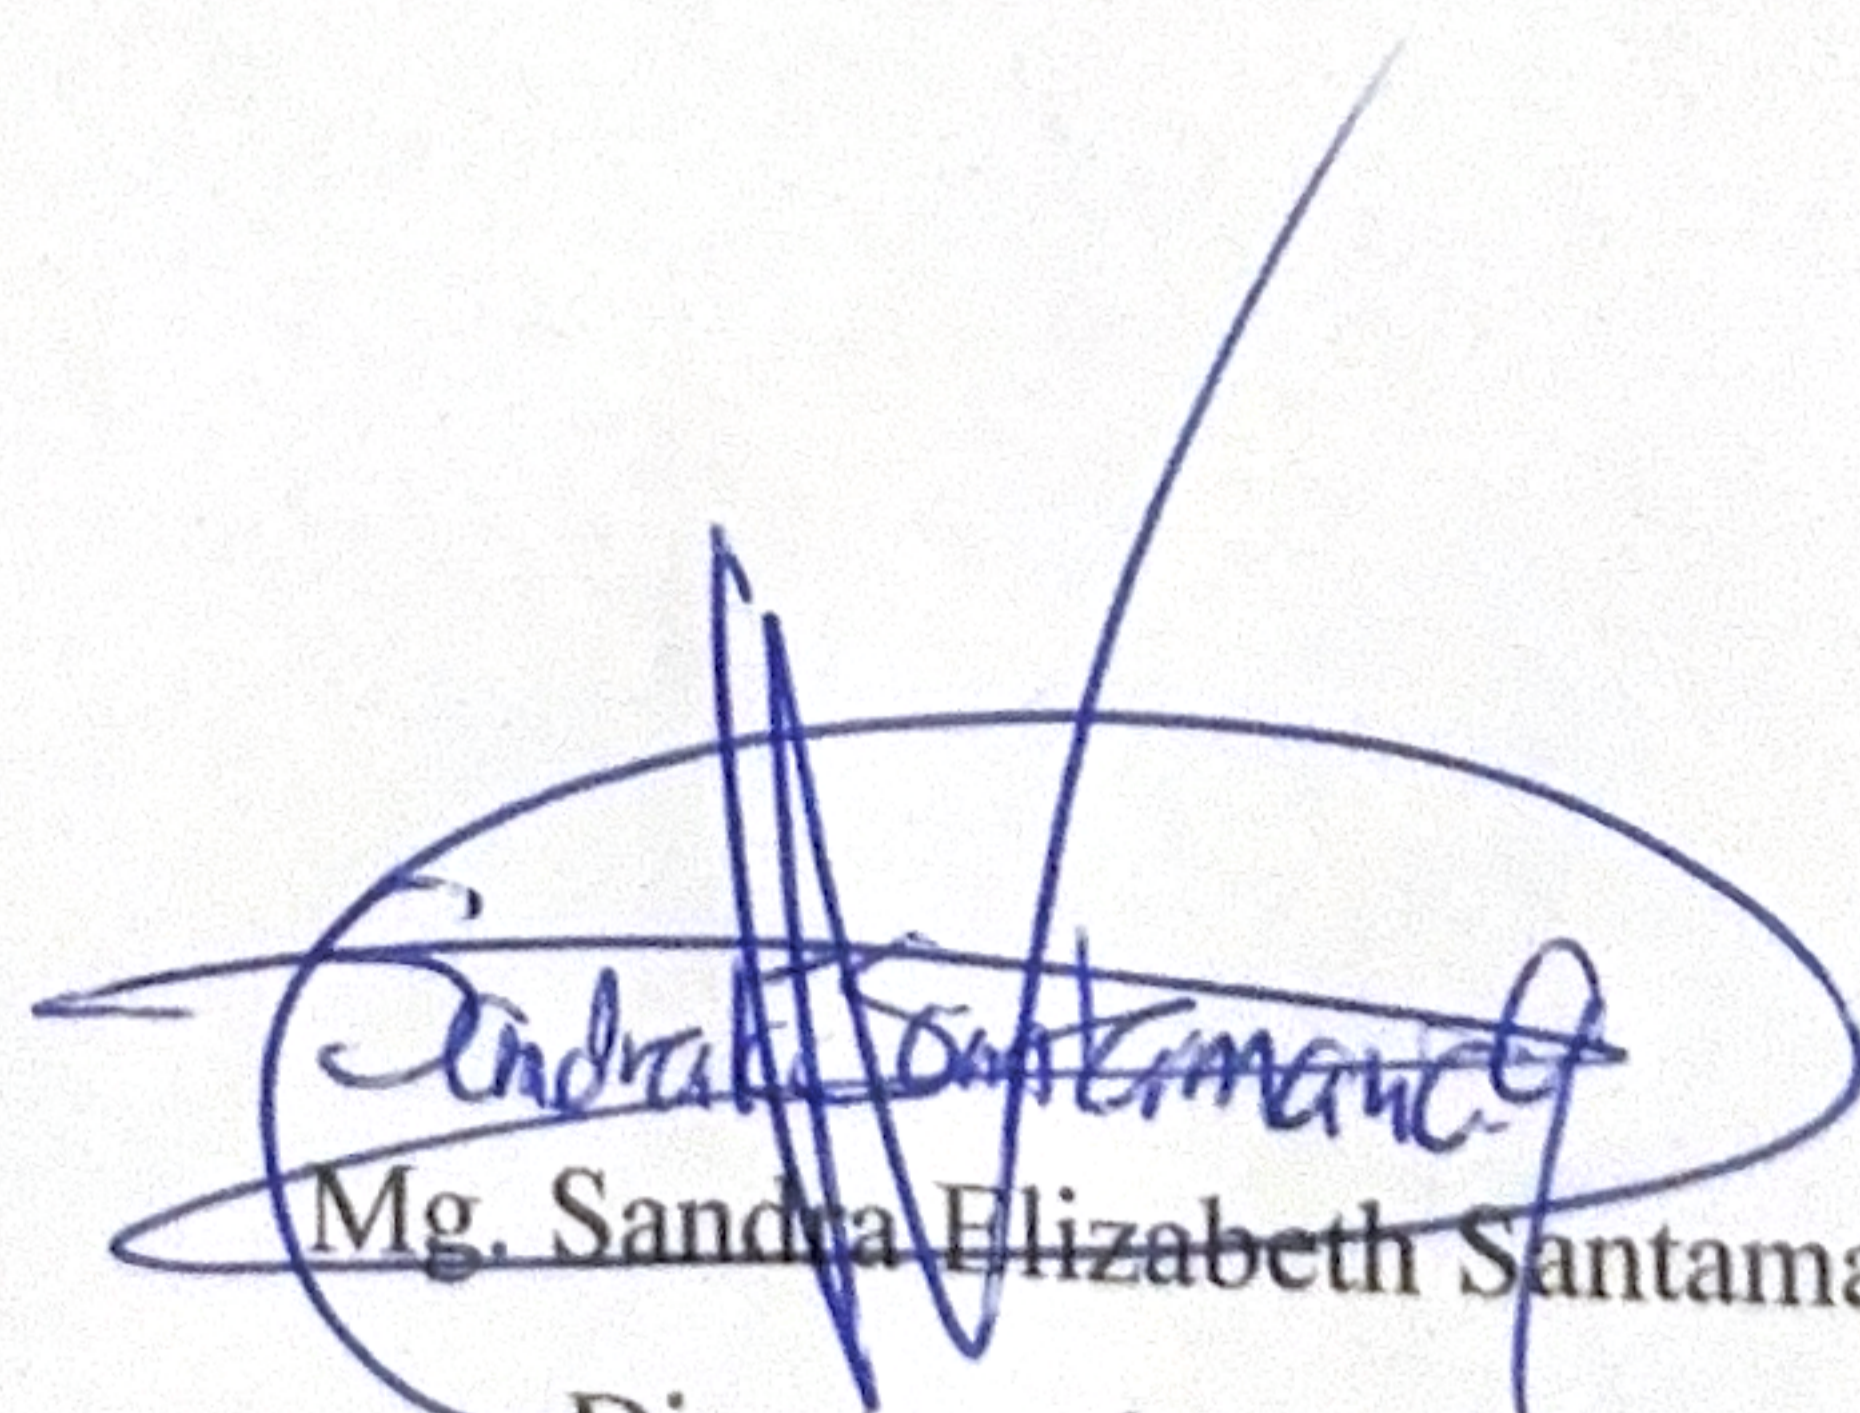 Sandra E. Santamaría
Mg. Sandra Elizabeth Santama
Di